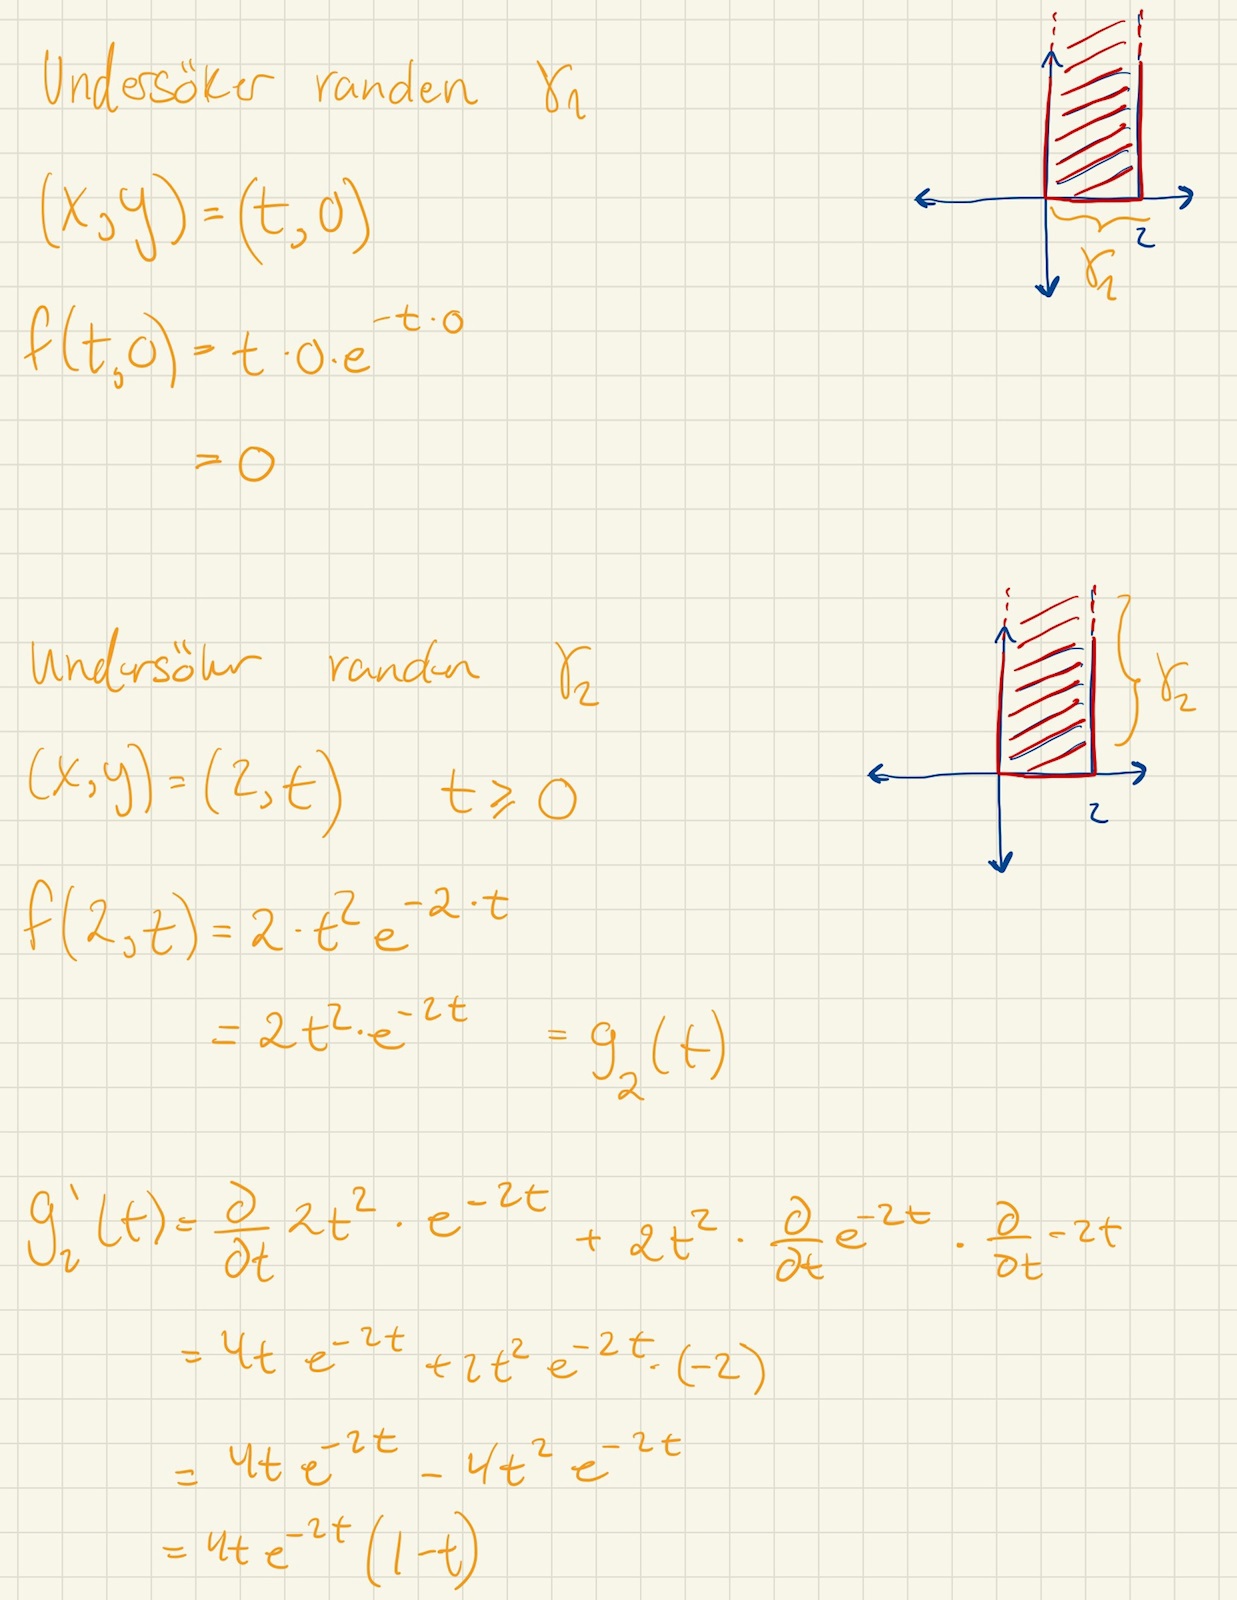 Undersöker randen γ₁
(x,y) = (t,0)
f(t,0) = t·0·e^{-t·0}
= 0
2
γ₁
Undersöker randen γ₂
(x,y) = (2,t) t ≥ 0
f(2,t) = 2·t² e^{-2·t}
= 2t²·e^{-2t} = g₂(t)
γ₂
2
g₂'(t) = ∂/∂t 2t² · e^{-2t} + 2t² · ∂/∂t e^{-2t} · ∂/∂t -2t
= 4t e^{-2t} + 2t² e^{-2t}·(-2)
= 4t e^{-2t} - 4t² e^{-2t}
= 4t e^{-2t} (1-t)